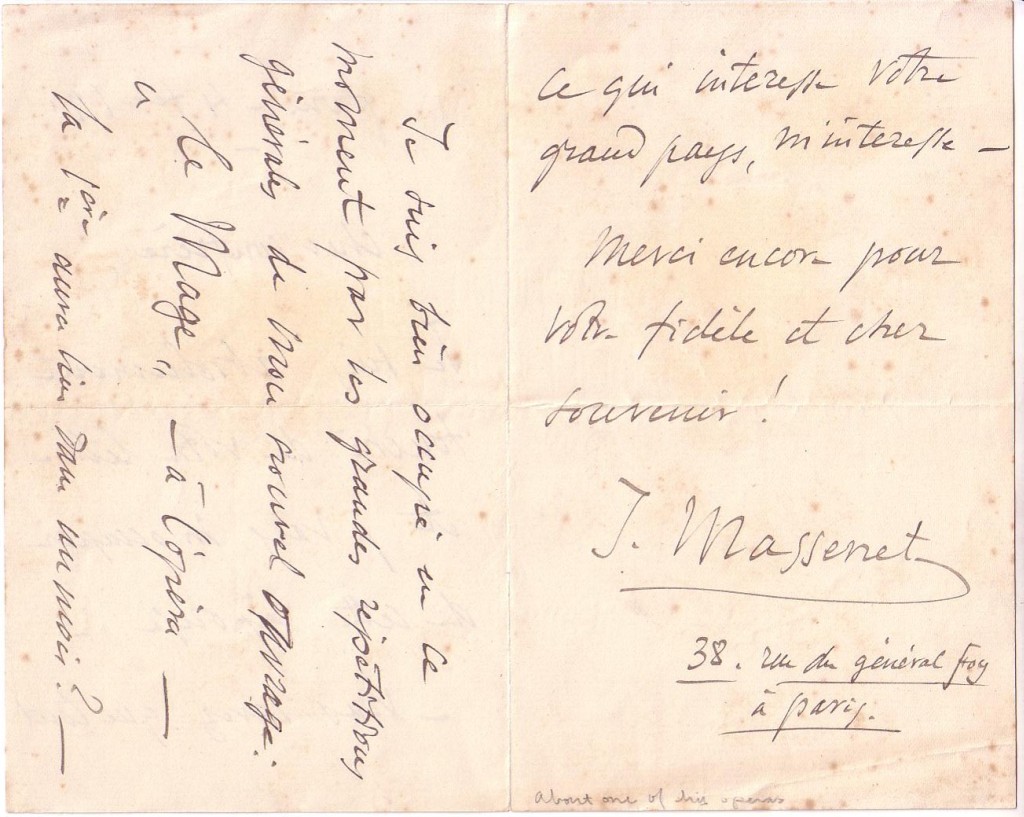 Je suis bien occupé en ce
moment par les grandes répétitions
générales de mon nouvel ouvrage:
"Le Mage" — à l'opéra —
la 1ère aura lieu dans un mois? —
ce qui interesse votre
grand pays, m'interesse —
Merci encore pour
votre fidèle et cher
souvenir!
J. Massenet
38. rue du général Foy
à Paris.
About one of his operas